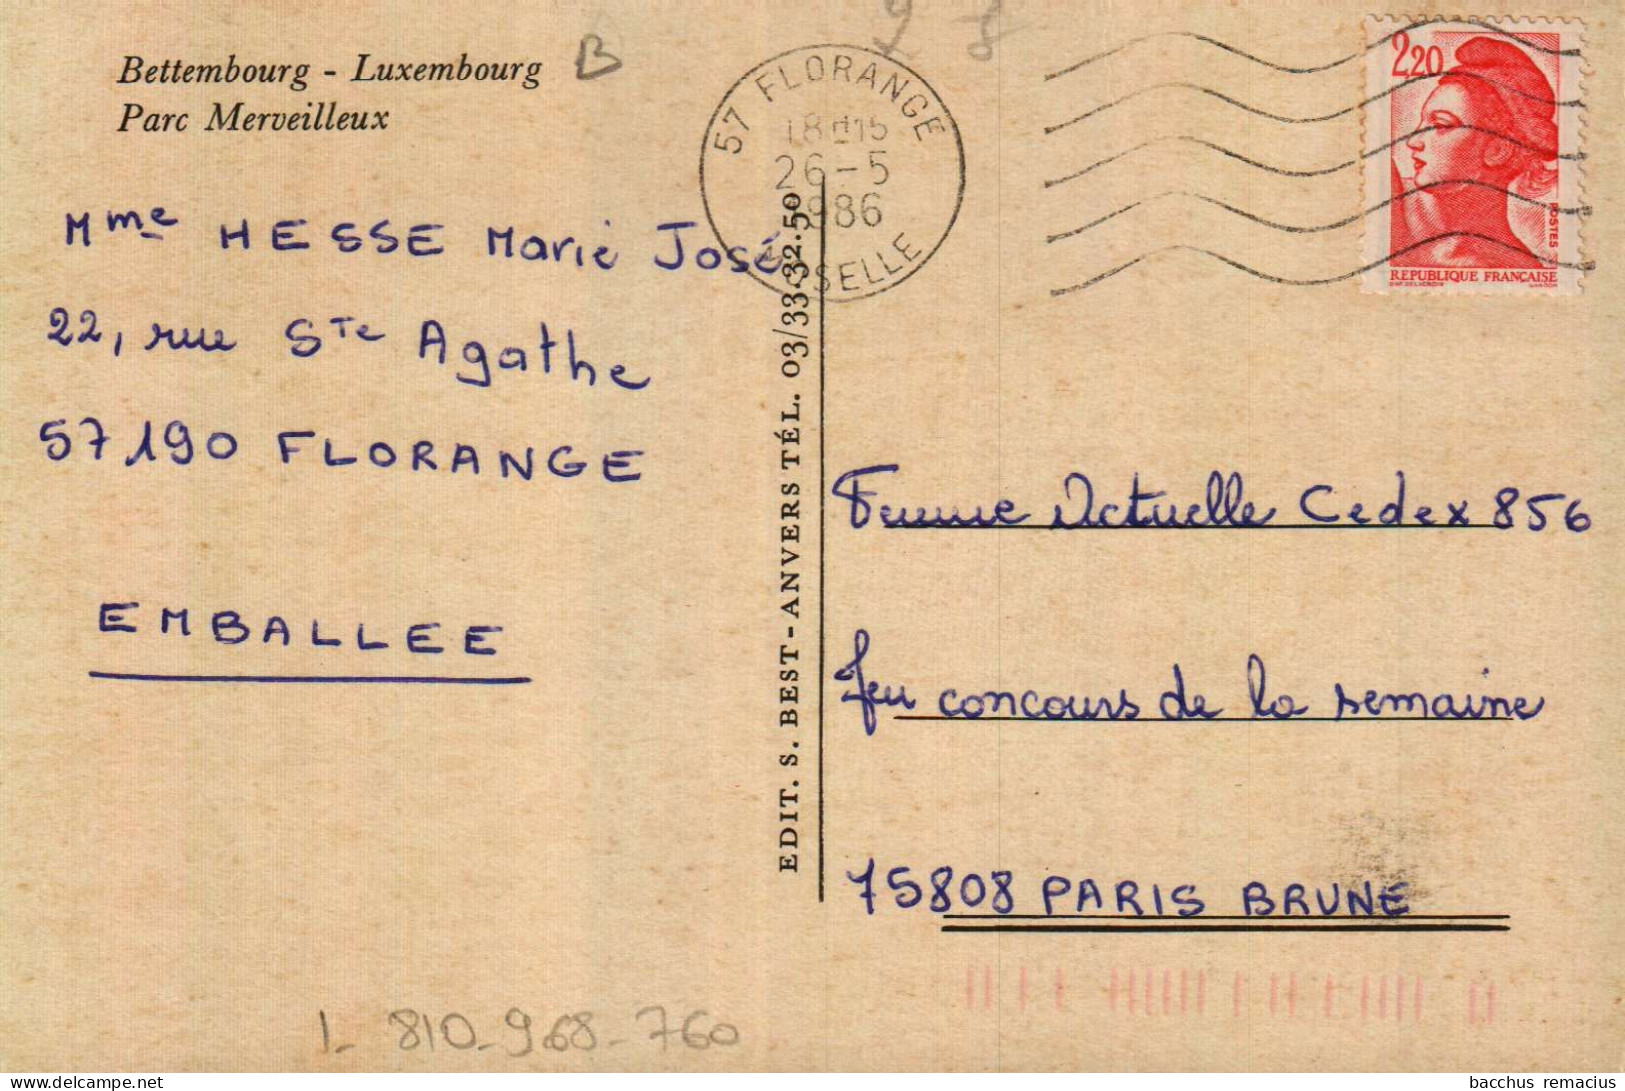 Bettembourg - Luxembourg
Parc Merveilleux
B
9 8
57 FLORANGE
18H15
26-5
1986
MOSELLE
2,20
POSTES
REPUBLIQUE FRANÇAISE
Mme HESSE Marie José
22, rue Ste Agathe
57190 FLORANGE
EMBALLEE
EDIT. S. BEST - ANVERS TÉL. 03/33.32.50
Femme Actuelle Cedex 856
Jeu concours de la semaine
75808 PARIS BRUNE
L-810-968-760
bacchus remacius
delcampe.net